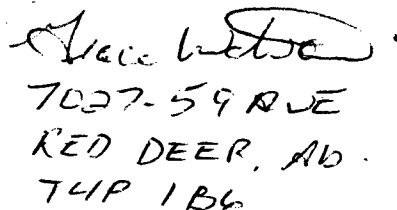 7027-59 AVE
RED DEER, Ab.
T4P 1B6